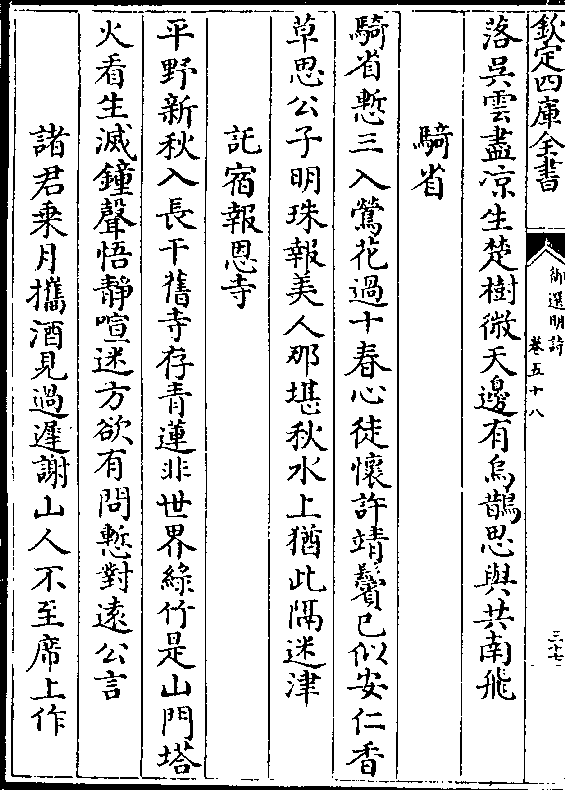 欽定四庫全書
御選明詩
卷五十八
三十七
落吳雲盡凉生楚樹微天邊有烏鵲思與共南飛
騎省
騎省慙三入鶯花過十春心徒懷許靖鬢已似安仁香
草思公子明珠報美人那堪秋水上猶此隔迷津
託宿報恩寺
平野新秋入長干舊寺存青蓮非世界綠竹是山門塔
火看生滅鐘聲悟静喧迷方欲有問慙對遠公言
諸君乘月攜酒見過遲謝山人不至席上作